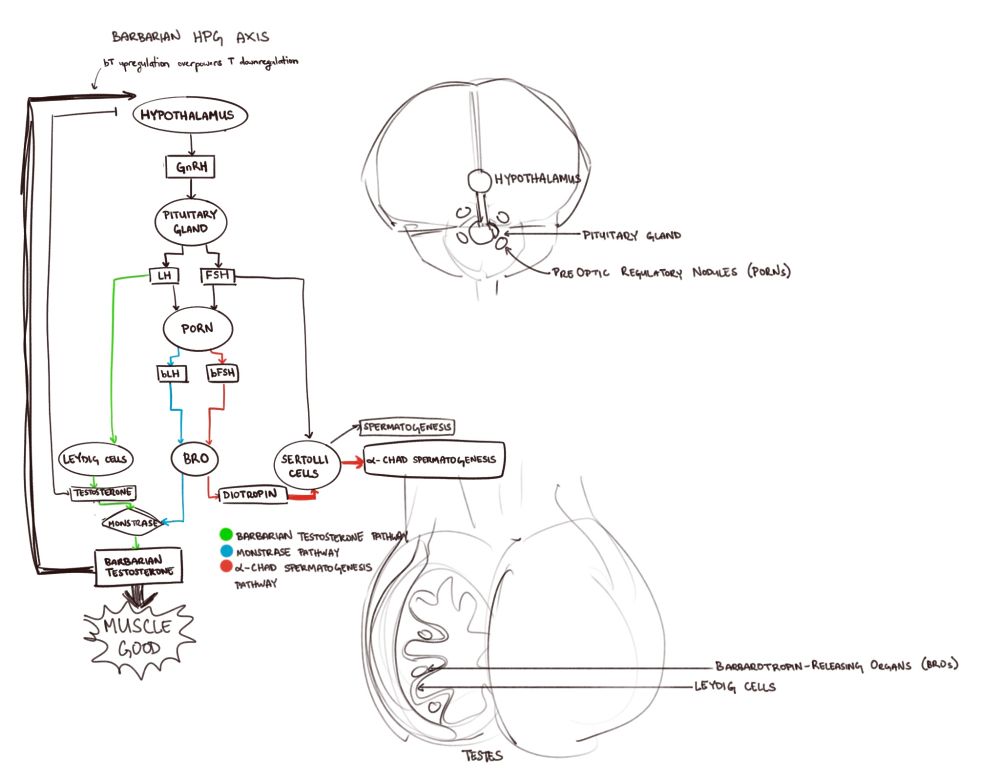 BARBARIAN HPG AXIS
bT upregulation overpowers T downregulation
HYPOTHALAMUS
GnRH
PITUITARY
GLAND
LH
FSH
PORN
bLH
bFSH
LEYDIG CELLS
BRO
SERTOLLI
CELLS
SPERMATOGENESIS
α-CHAD SPERMATOGENESIS
TESTOSTERONE
DIOTROPIN
MONSTRASE
BARBARIAN
TESTOSTERONE
MUSCLE
GOOD
BARBARIAN TESTOSTERONE PATHWAY
MONSTRASE PATHWAY
α-CHAD SPERMATOGENESIS
PATHWAY
HYPOTHALAMUS
PITUITARY GLAND
PREOPTIC REGULATORY NODULES (PORNS)
BARBAROTROPIN-RELEASING ORGANS (BROS)
LEYDIG CELLS
TESTES